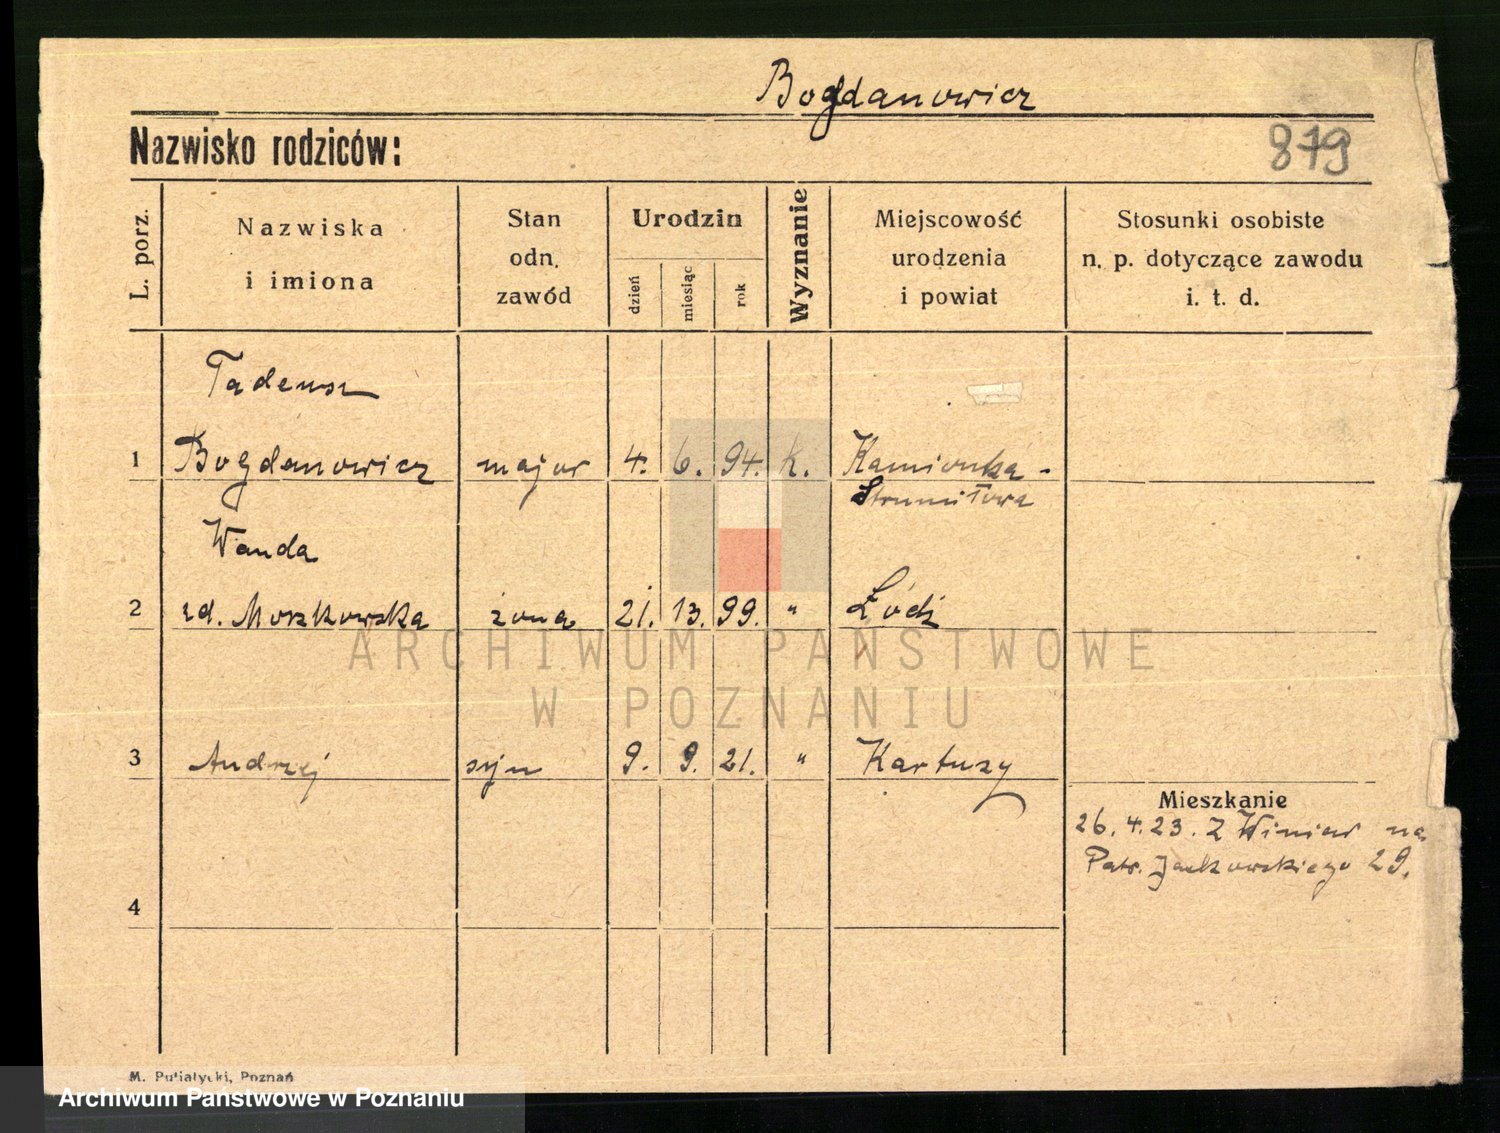 Bogdanowicz
Nazwisko rodziców:
879
L. porz.
Nazwiska
i imiona
Stan
odn.
zawód
Urodzin
dzień
miesiąc
rok
Wyznanie
Miejscowość
urodzenia
i powiat
Stosunki osobiste
n. p. dotyczące zawodu
i. t. d.
Tadeusz
1 Bogdanowicz major 4. 6. 94. k. Kamionka -
Strumiłowa
Wanda
2 zd. Moszkowska żona 21. 13. 99. " Łódź
ARCHIWUM PAŃSTWOWE
W POZNANIU
3 Andrzej syn 9. 9. 21. " Kartuzy
Mieszkanie
26. 4. 23. Z Winiar na
Patr. Jackowskiego 29.
4
M. Putiatycki, Poznań
Archiwum Państwowe w Poznaniu